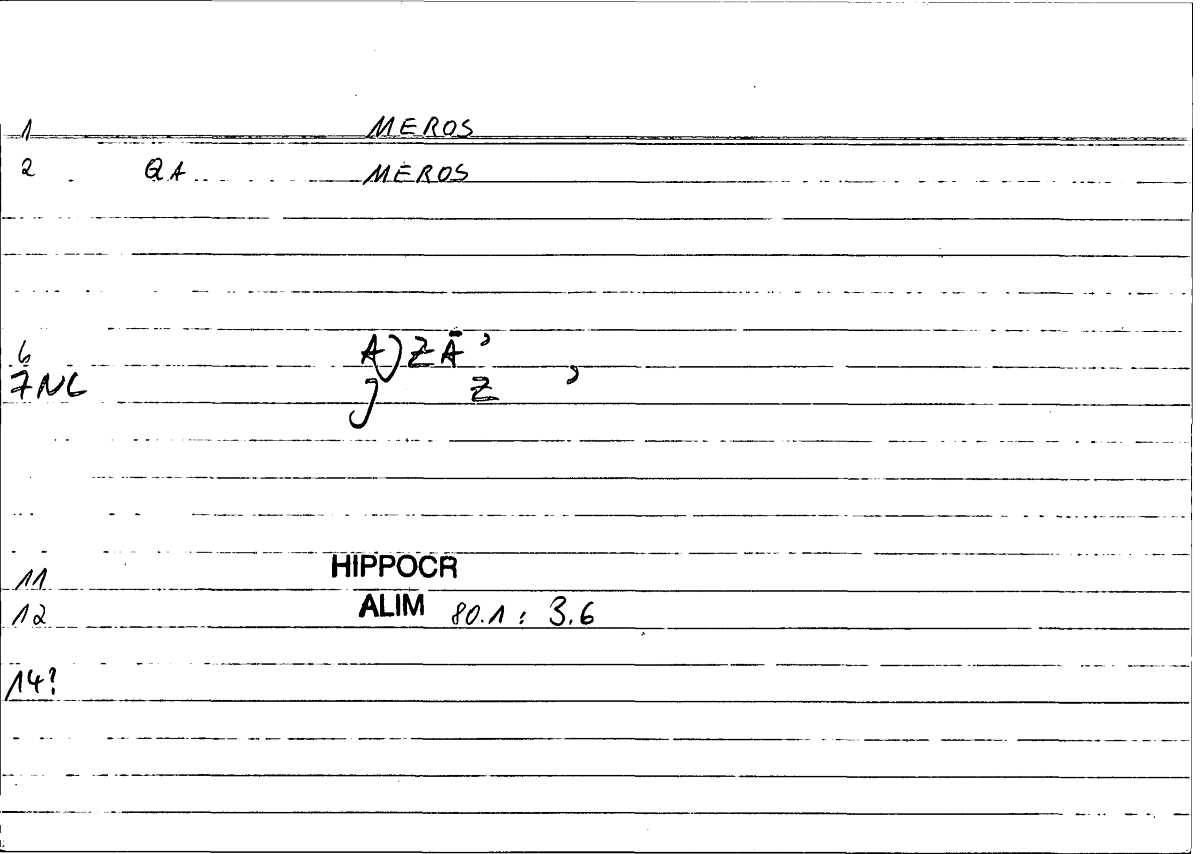 1 MEROS
2 QA MEROS
6 A) Z Ā ,
7 NC J Z ,
11 HIPPOCR
12 ALIM 80.1 : 3.6
14?